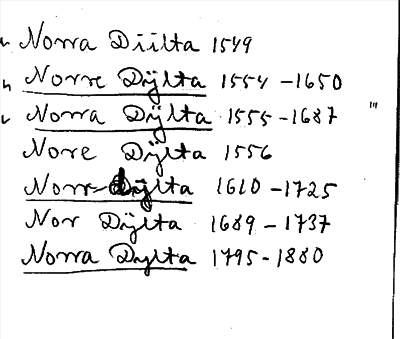 Norra Diilta 1549
Norre Dÿlta 1554-1650
Norra Dÿlta 1555-1687
Nore Dÿlta 1556
Norr dÿlta 1610-1725
Nor Dÿlta 1689-1737
Norra Dylta 1795-1880